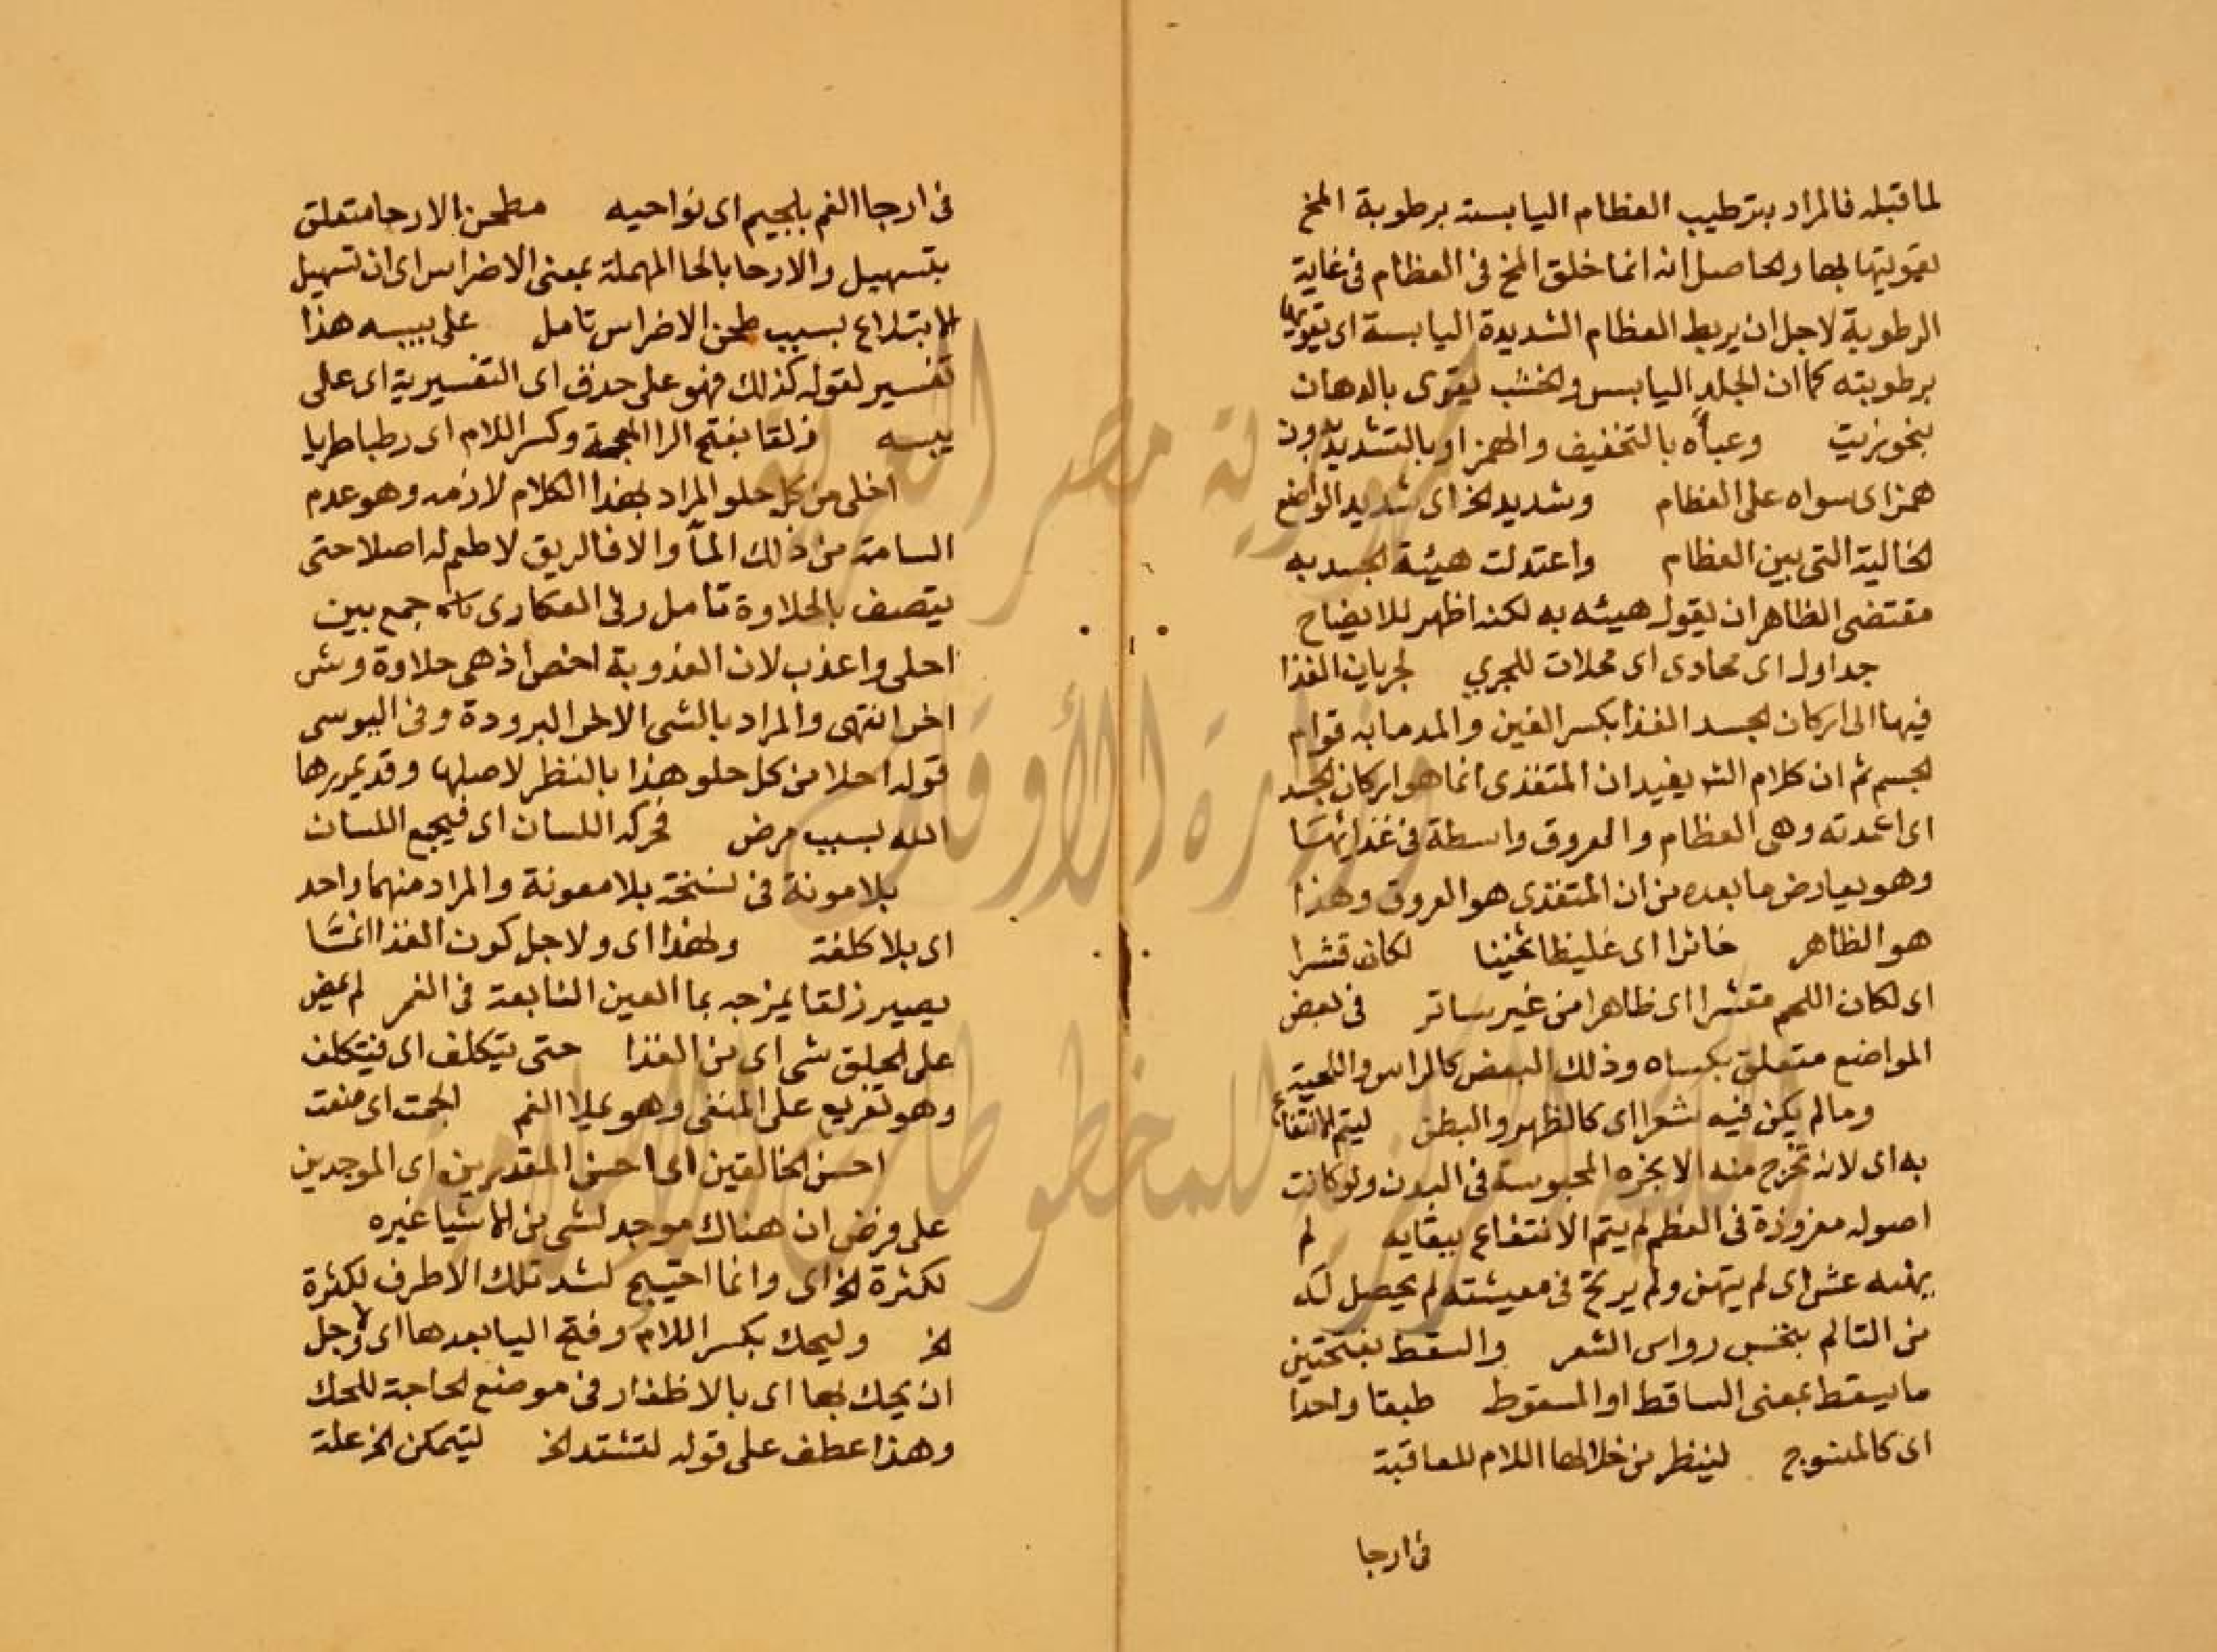 لما قبله فالمراد بترطيب العظام اليابسة برطوبة المخ
تقويتها بها والحاصل انه انما خلق المخ في العظام في غاية
الرطوبة لاجل ان يربط العظام الشديدة اليابسة اى تقويتها
برطوبته كما ان الجلد اليابس والخشب يقوى بالدهان
بنحو زيت وعباه بالتخفيف والهمز او بالتشديد بدون
همز اى سواه على العظام وشديد الخ اى شديد المواضع
الخالية التى بين العظام واعتدلت هيئة الجسد به
مقتضى الظاهر ان يقول هيئه به لكنه اظهر للايضاح
جداول اى محادى اى محلات للجري لجريان الغذا
فيها الى اركان الجسد الغذا بكسر الغين والمد ما به قوام
الجسم ثم ان كلام الش يفيد ان المتغذى انما هو اركان الجسد
اى اعمدته وهى العظام والعروق واسطة في غذائها
وهو يعارض ما بعده من ان المتغذى هو العروق وهذا
هو الظاهر خاثرا اى غليظا ثخينا لكان قشرا
اى لكان اللحم متقشرا اى ظاهرا من غير ساتر في بعض
المواضع متعلق بكساه وذلك البعض كالراس واللحية
وما لم يكن فيه شعرا اى كالظهر والبطن ليتم الانتفاع
به اى لانه تخرج منه الابخره المحبوسة في البدن ولو كانت
اصوله مغروزة في العظم لم يتم الانتفاع ببقايه لم
يهنه عش اى لم يتهن ولم يرتح في معيشته لم يحصل له
من التالم بنخس رواس الشعر والسقط بفتحتين
ما يسقط بمعنى الساقط او المسقوط طبقا واحدا
اى كالمنسوج لينظر من خلالها اللام للعاقبة
في ارجا
في ارجا الفم بالجيم اى نواحيه مطحن الارحا متعلق
بتسهيل والارحا بالحا المهملة بمعنى الاضراس اى ان تسهيل
الابتلاع بسبب طحن الاضراس تامل على يبسه هذا
تفسير لقوله كذلك فهو على حذف اى التفسيرية اى على
يبسه زلقا بفتح الزا المعجمة وكسر اللام اى رطبا طريا
احلى من كل حلو المراد بهذا الكلام لازمه وهو عدم
السامة من ذلك الما والا فالريق لا طعم له اصلا حتى
يتصف بالحلاوة تامل وفي العكارى جمع بين
احلى واعذب لان العذوبة اخص اذ هى حلاوة وشى
اخر انتهى والمراد بالشى الاخر البرودة وفي اليوسى
قوله احلا من كل حلو هذا بالنظر لاصلها وقد يمررها
الله بسبب مرض فحركه اللسان اى فيجمع اللسان
بلا مونة في نسخة بلا معونة والمراد منهما واحد
اى بلا كلفة ولهذا اى ولاجل كون الغذا انما
يصير زلقا يمزجه بما العين النابعة في الفم لم يمض
على الحلق شى اى من الغذا حتى يتكلف اى فيتكلف
وهو تفريع على المنفى وهو يملا الفم لجمت اى منعت
احسن الخالقين اى احسن المقدرين اى الموجدين
على فرض ان هناك موجد لشى من الاشيا غيره
لكثرة الخ اى وانما احتيج لشد تلك الاطرف لكثرة
الخ وليحك بكسر اللام وفتح اليا بعدها اى ولاجل
ان يحك بها اى بالاظفار في موضع الحاجة للحك
وهذا عطف على قوله لتشتد الخ ليتمكن الخ علة